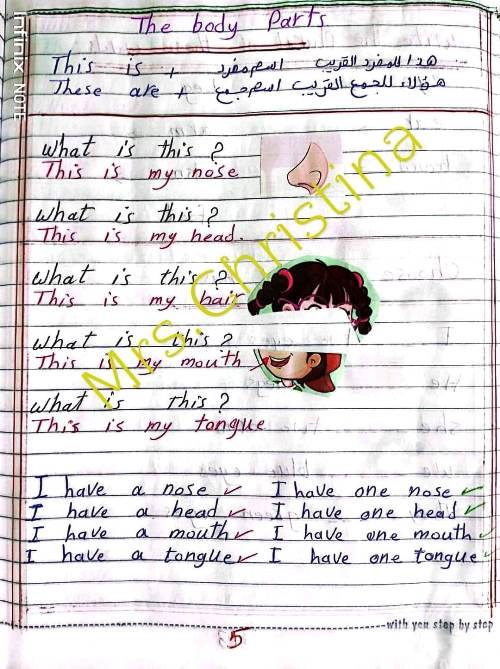 The body Parts
This is + اسم مفرد هذا للمفرد القريب
These are + هؤلاء للجمع القريب اسم جمع
What is this ?
This is my nose
What is this ?
This is my head.
What is this ?
This is my hair
What is this ?
This is my mouth
What is this ?
This is my tongue
I have a nose ✓ I have one nose ✓
I have a head ✓ I have one head ✓
I have a mouth ✓ I have one mouth ✓
I have a tongue ✓ I have one tongue ✓
with you step by step
5
Mrs.Christina
Infinix NOTE